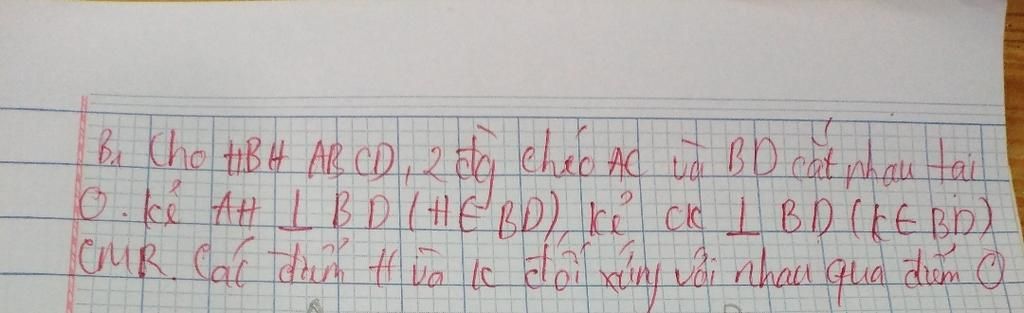 B1 Cho HBH ABCD, 2 đg chéo AC và BD cắt nhau tại
O. kẻ AH ⊥ BD (H ∈ BD), kẻ CK ⊥ BD (K ∈ BD)
CMR Các điểm H và K đối xứng với nhau qua điểm O